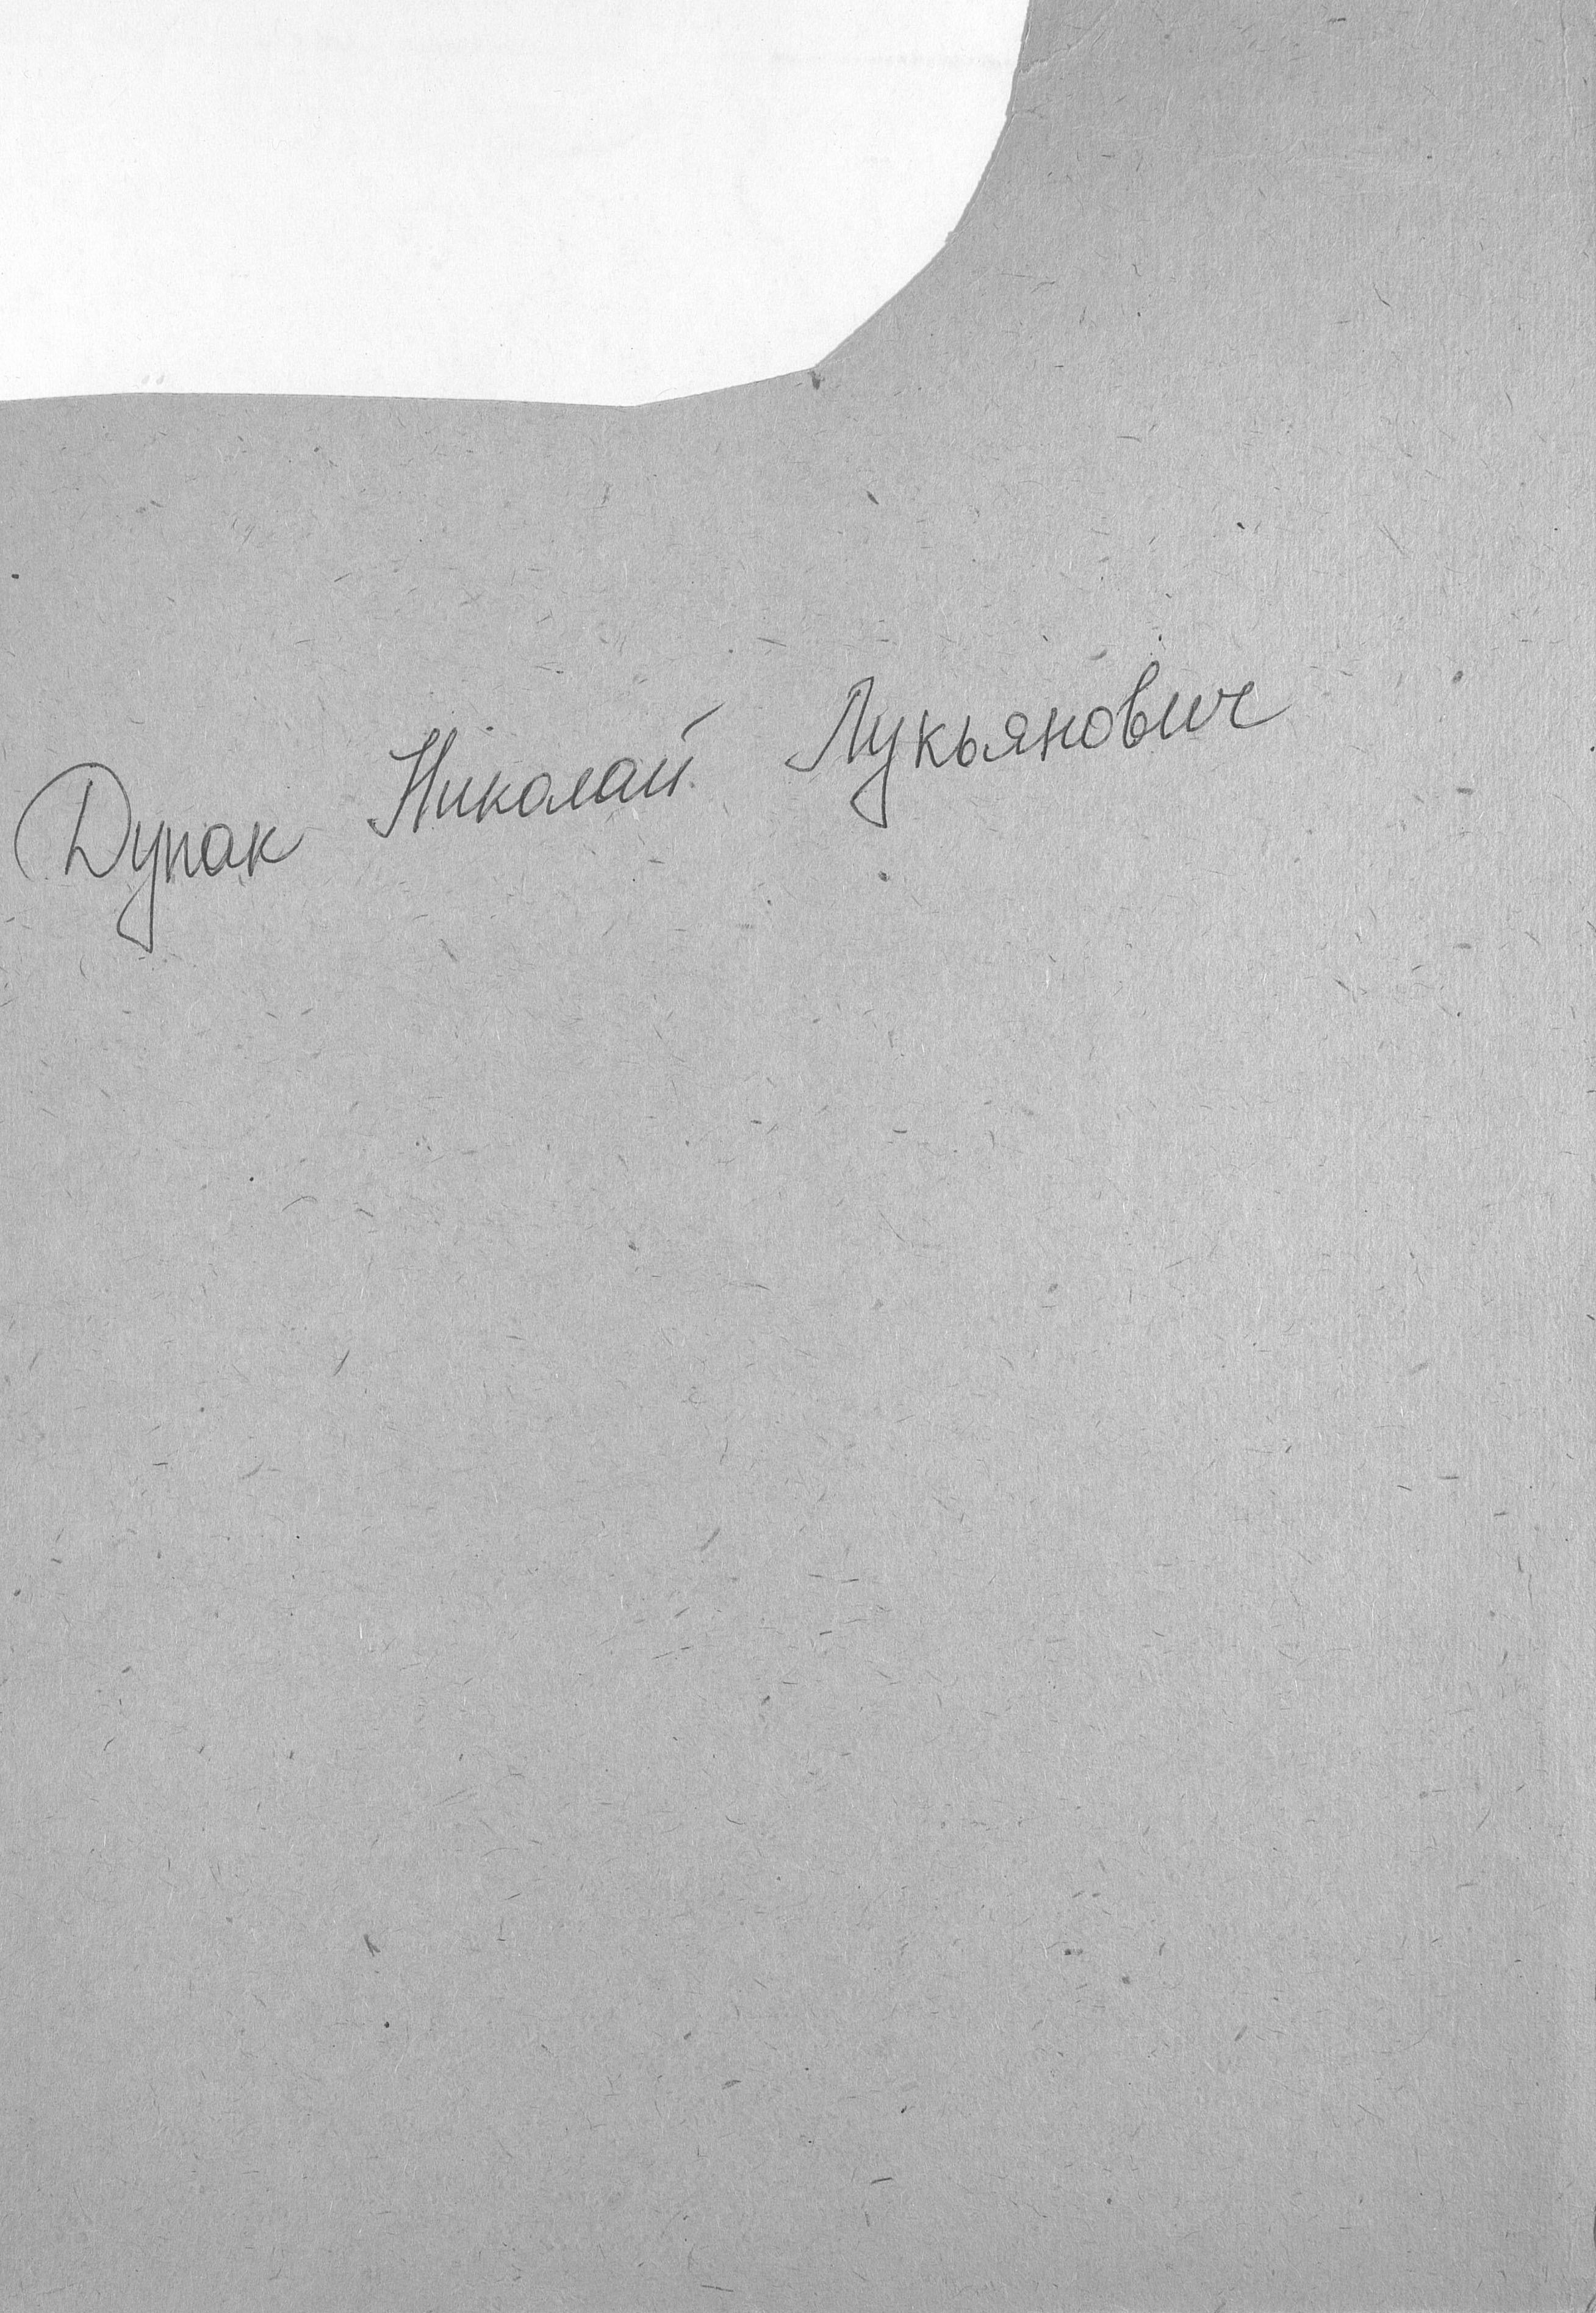 Дупак Николай Лукьянович